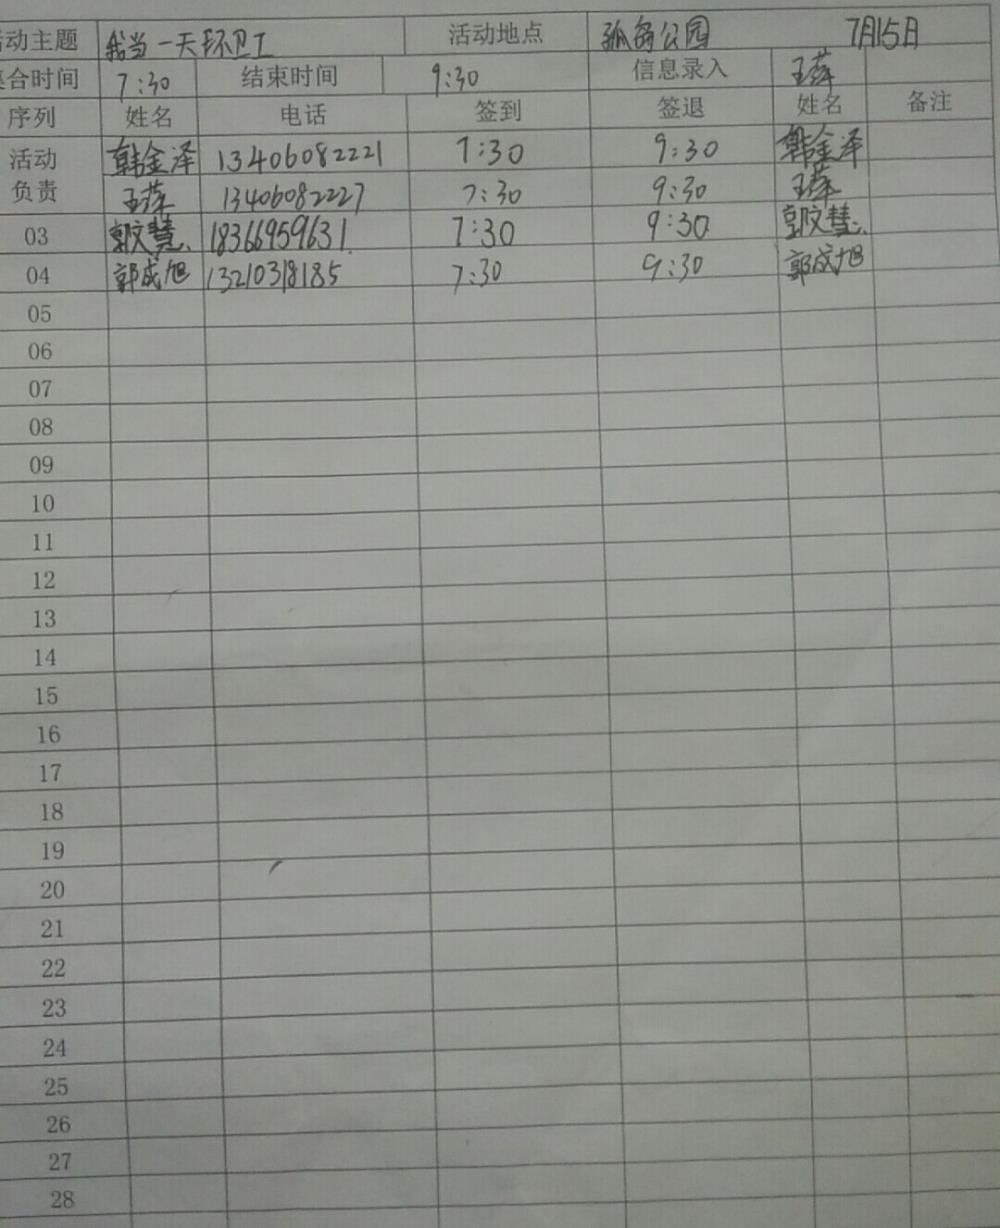 活动主题 我当一天环卫工 活动地点 孤岛公园 7月15日
集合时间 7:30 结束时间 9:30 信息录入 王萍
序列 姓名 电话 签到 签退 姓名 备注
活动负责 韩金泽 13406082221 7:30 9:30 韩金泽
王萍 13406082227 7:30 9:30 王萍
03 郭文慧 18366959631 7:30 9:30 郭文慧
04 郭成旭 13210318185 7:30 9:30 郭成旭
05
06
07
08
09
10
11
12
13
14
15
16
17
18
19
20
21
22
23
24
25
26
27
28